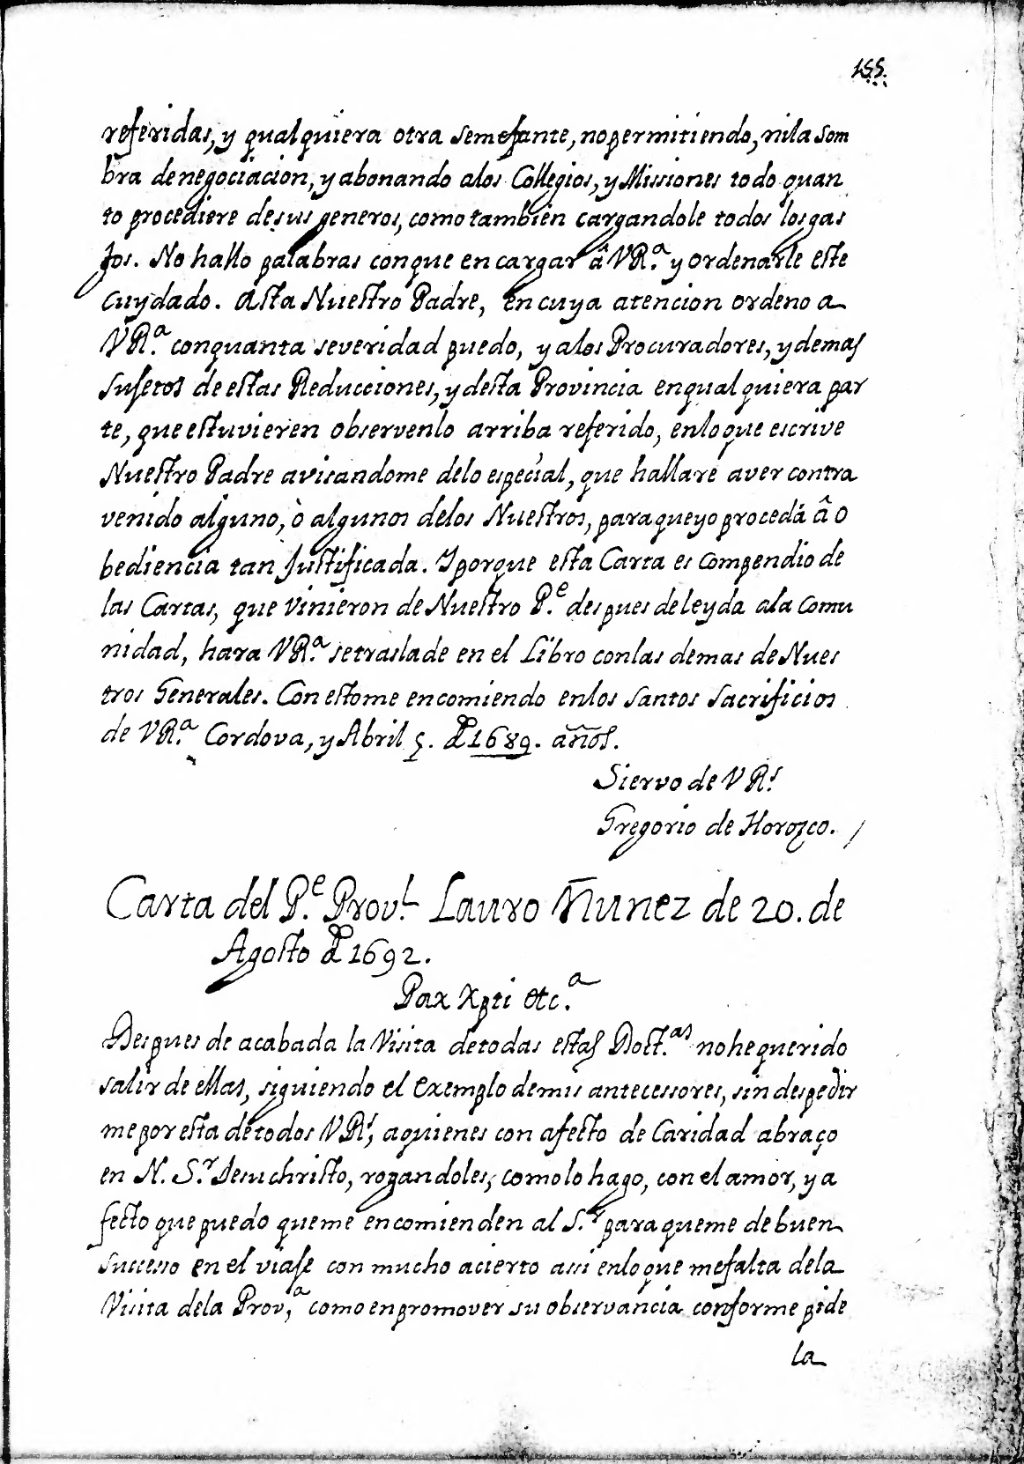 155.
referidas, y qualquiera otra semejante, no permitiendo, ni la som
bra de negociacion, y abonando a los Collegios, y Missiones todo quan
to procediere de sus generos, como tambien cargandole todos los gas
tos. No hallo palabras con que en cargar â VR.ª y ordenarle este
cuydado. Asta Nuestro Padre, en cuya atencion ordeno a
VR.ª con quanta severidad puedo, y a los Procuradores, y demas
sujetos de estas Reducciones, y desta Provincia en qual quiera par
te, que estuvieren observen lo arriba referido, en lo que escrive
Nuestro Padre avisandome de lo especial, que hallare aver contra
venido alguno, ò algunos de los Nuestros, para que yo proceda â o
bediencia tan Justificada. Y porque esta Carta es compendio de
las Cartas, que vinieron de Nuestro P.e des pues de leyda a la Comu
nidad, hara VR.ª se traslade en el Libro con las demas de Nues
tros Generales. Con esto me encomiendo en los santos sacrificios
de VR.ª Cordova, y Abril 5. d 1689. años.
Siervo de VR.s
Gregorio de Horozco. /
Carta del P.e Prov.l Lauro Ñunez de 20. de
Agosto d 1692.
Pax Xpti etc.ª
Despues de acabada la Visita de todas estas Doct.as no he querido
salir de ellas, siguiendo el exemplo de mis antecessores, sin despedir
me por esta de todos VR.s, a quienes con afecto de Caridad abraço
en N. S.r Jesuchristo, rogandoles, como lo hago, con el amor, y a
fecto que puedo que me encomienden al S.r para que me de buen
successo en el viaje con mucho acierto assi en lo que me falta de la
Visita de la Prov.ª, como en promover su observancia conforme pide
la